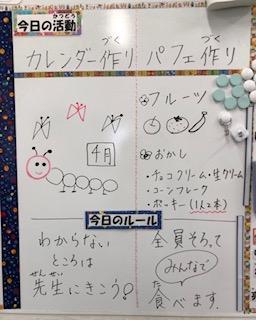 かつどう
今日の活動
づく
カレンダー作り
づく
パフェ作り
4月
フルーツ
おかし
・チョコクリーム・生クリーム
・コーンフレーク
・ポーキー(1人2本)
今日のルール
わからない
ところは
せんせい
先生にきこう!
全員そろって
みんなで
た
食べます。